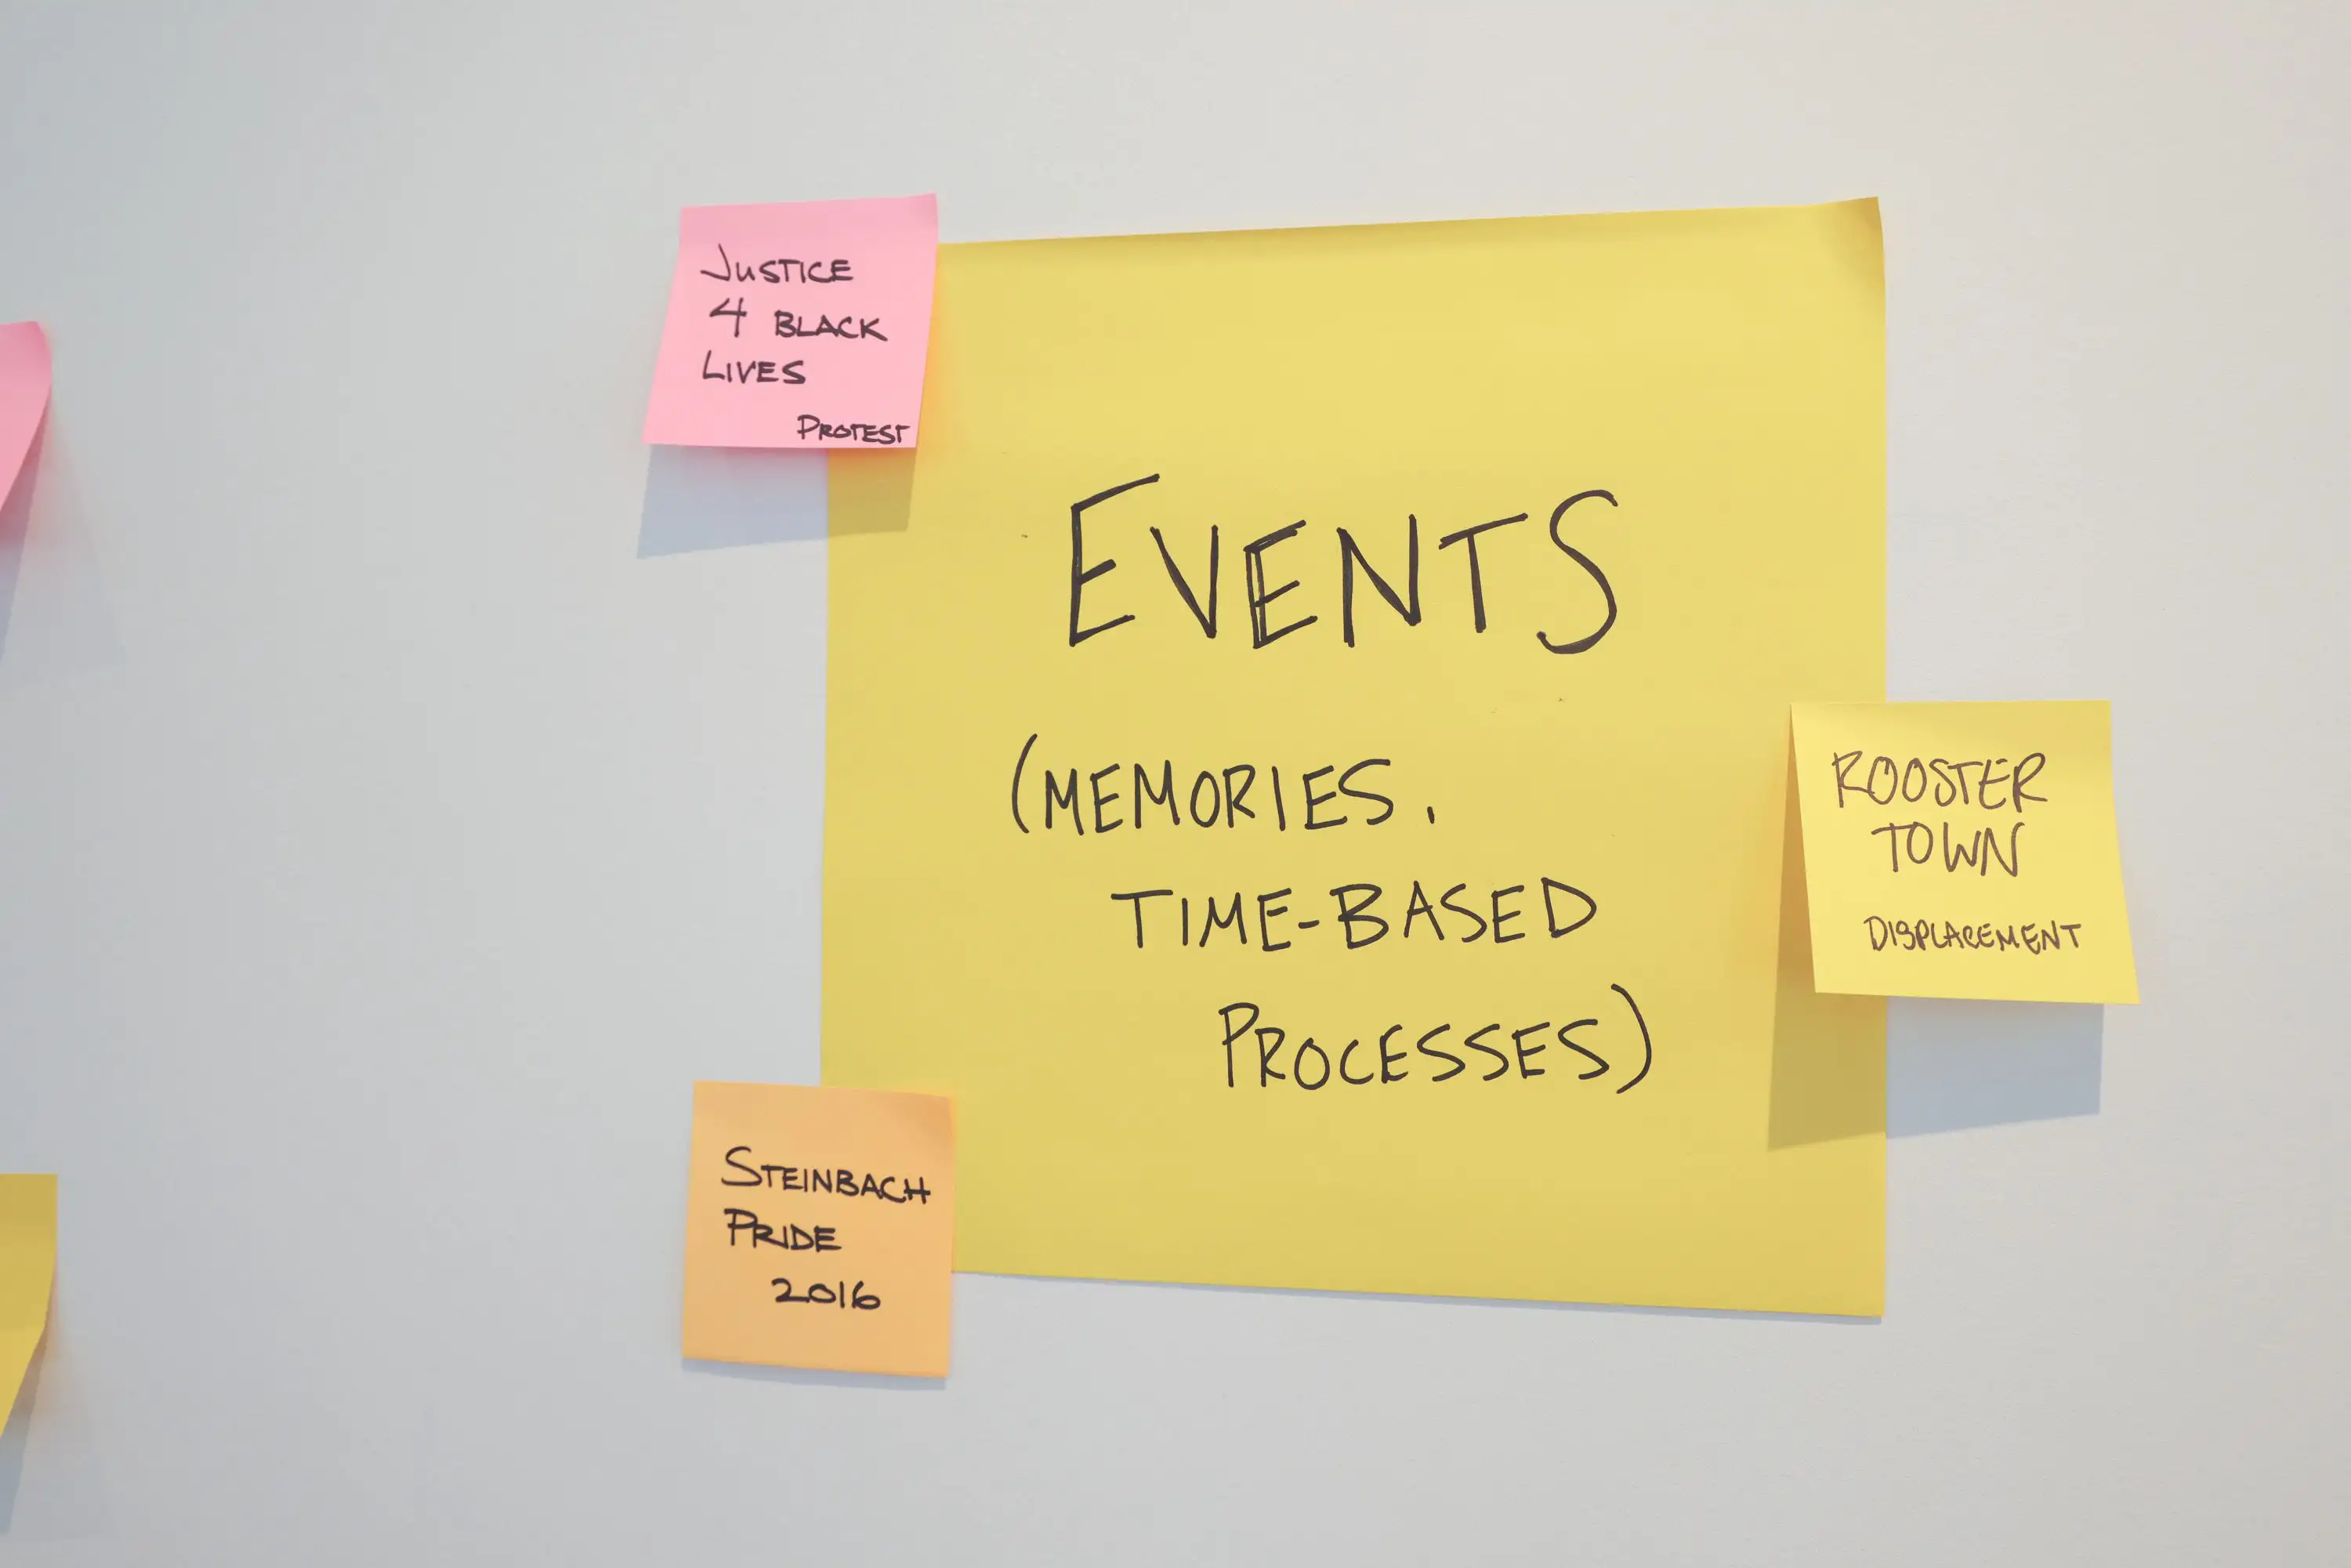 JUSTICE
4 BLACK
LIVES
PROTEST
EVENTS
(MEMORIES,
TIME-BASED
PROCESSES)
ROOSTER
TOWN
DISPLACEMENT
STEINBACH
PRIDE
2016